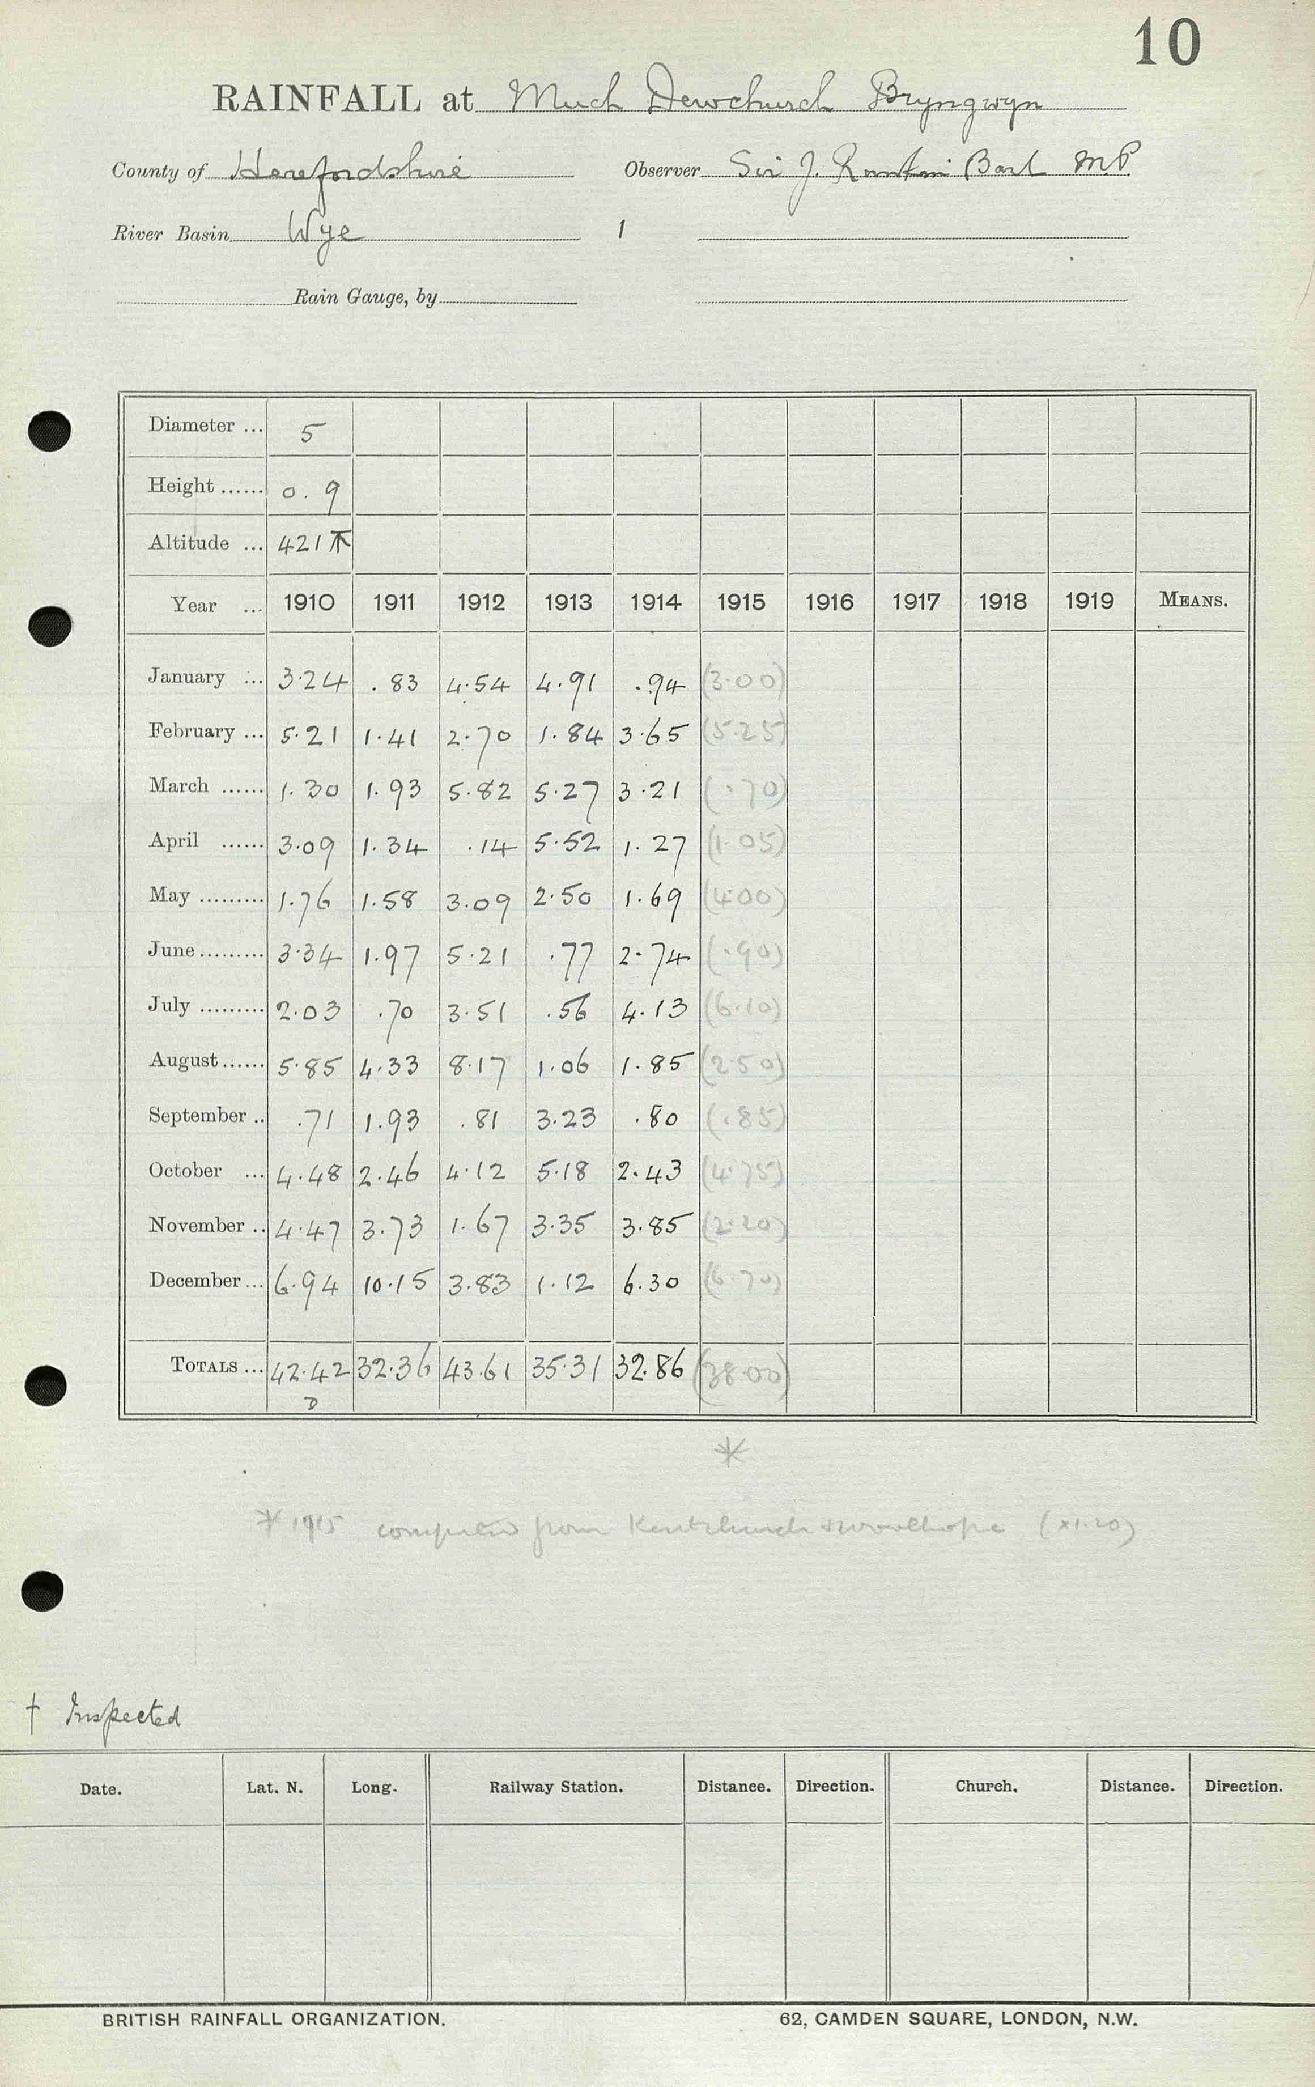 10
RAINFALL at Much Dewchurch Bryngwyn
County of Herefordshire Observer Sir J. Rankin Bart MP.
River Basin Wye 1
Rain Gauge, by
Diameter ... 5
Height ...... 0.9
Altitude ... 421
Year ... 1910 1911 1912 1913 1914 1915 1916 1917 1918 1919 MEANS.
January ... 3.24 .83 4.54 4.91 .94 (3.00)
February ... 5.21 1.41 2.70 1.84 3.65 (5.25)
March ...... 1.30 1.93 5.82 5.27 3.21 (.70)
April ...... 3.09 1.34 .14 5.52 1.27 (1.05)
May ......... 1.76 1.58 3.09 2.50 1.69 (4.00)
June ......... 3.34 1.97 5.21 .77 2.74 (.90)
July ......... 2.03 .70 3.51 .56 4.13 (6.10)
August ...... 5.85 4.33 8.17 1.06 1.85 (2.50)
September .. .71 1.93 .81 3.23 .80 (.85)
October ... 4.48 2.46 4.12 5.18 2.43 (4.75)
November .. 4.47 3.73 1.67 3.35 3.85 (2.20)
December ... 6.94 10.15 3.83 1.12 6.30 (6.70)
TOTALS ... 42.42 32.36 43.61 35.31 32.86 (38.00)
D
*
* 1915 computed from Kentchurch (x1.20)
† Inspected
Date. Lat. N. Long. Railway Station. Distance. Direction. Church. Distance. Direction.
BRITISH RAINFALL ORGANIZATION. 62, CAMDEN SQUARE, LONDON, N.W.